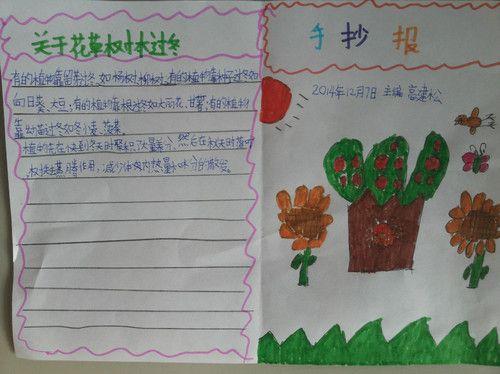 关于花草树木过冬
有的植物靠固芽过冬,如杨树,柳树,有的植物靠种子过冬如
向日葵、大豆,有的植物靠根过冬如大丽花、甘薯,有的植物
靠幼苗过冬如冬小麦、菠菜。
植物先在快到冬天时聚积了水量养分,然后在秋天时落叶
权找蒸腾作用,减少体内热量和水分的散发。
手抄报
2014年12月7日 主编 高建松